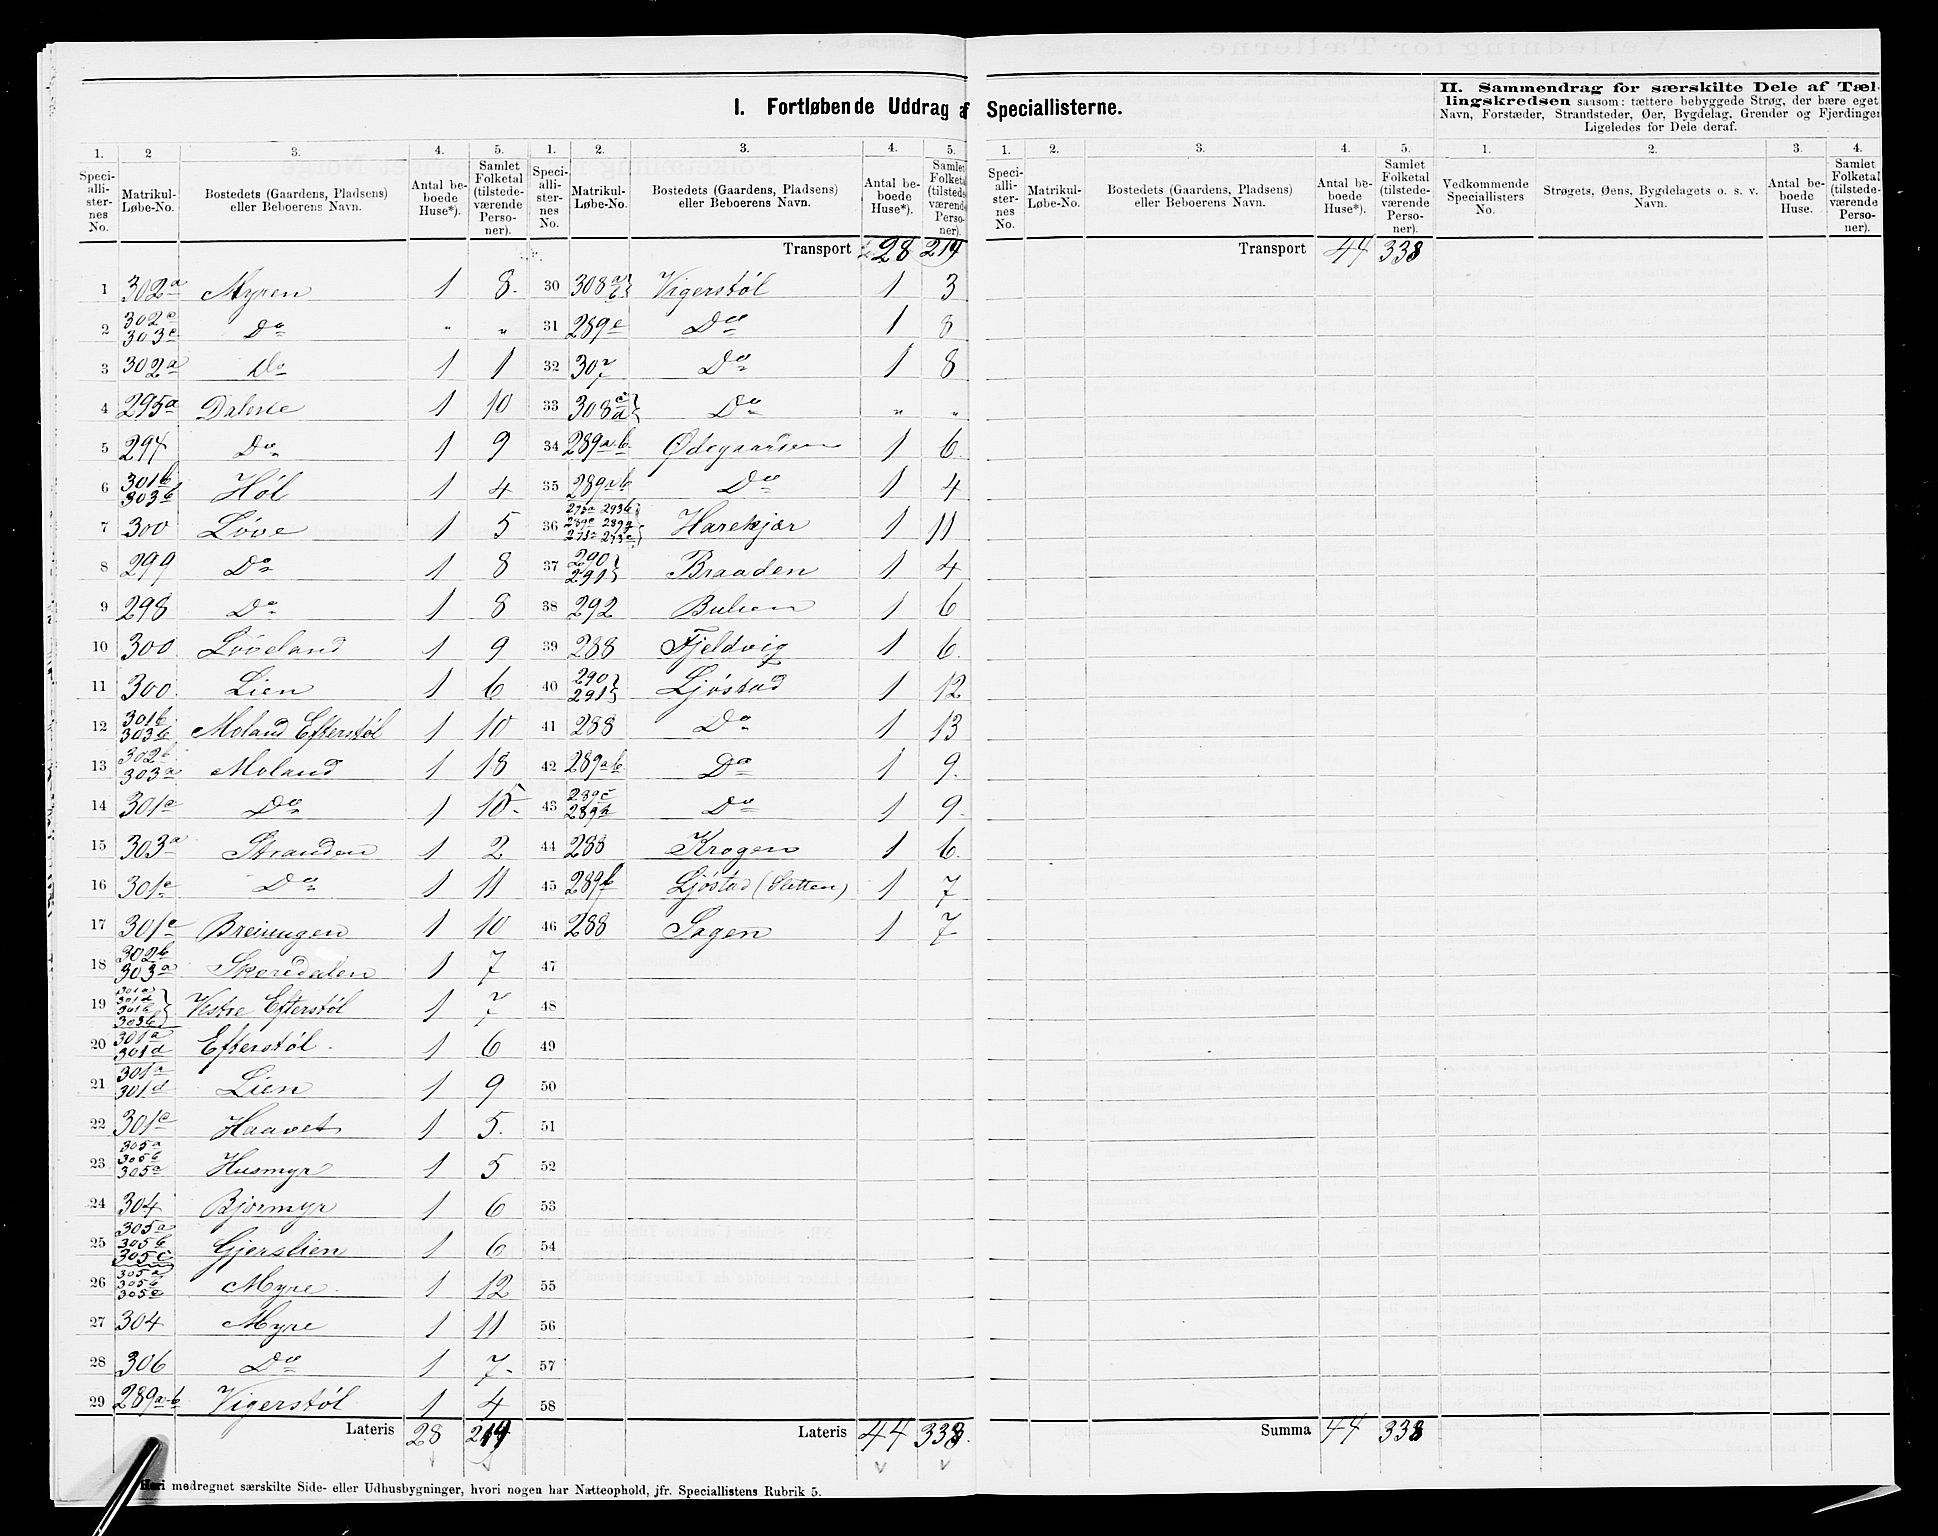 I. Fortløbende Uddrag af Speciallisterne.
II. Sammendrag for særskilte Dele af Tæl-
lingskredsen saasom: tættere bebyggede Strøg, der bære eget
Navn, Forstæder, Strandsteder, Øer, Bygdelag, Grender og Fjerdinger
Ligeledes for Dele deraf.
1. 2 3. 4. 5. 1. 2. 3. 4. 5. 1. 2. 3. 4. 5. 1. 2. 3. 4.
Speci-alli-ster-nes No.
Matrikul-Løbe-No.
Bostedets (Gaardens, Pladsens) eller Beboerens Navn.
Antal be-boede Huse*).
Samlet Folketal (tilstede-værende Perso-ner).
Speci-alli-ster-nes No.
Matrikul-Løbe-No.
Bostedets (Gaardens, Pladsens) eller Beboerens Navn.
Antal be-boede Huse*).
Samlet Folketal (tilstede-værende Perso-ner).
Speci-alli-ster-nes No.
Matrikul-Løbe-No.
Bostedets (Gaardens, Pladsens) eller Beboerens Navn.
Antal be-boede Huse*).
Samlet Folketal (tilstede-værende Perso-ner).
Vedkommende Speciallisters No.
Strøgets, Øens, Bygdelagets o. s. v. Navn.
Antal be-boede Huse.
Samlet Folketal (tilstede-værende Perso-ner).
Transport 28 219
Transport 44 338
1 302a Myren 1 8.
2 302c 303c Do " "
3 302a Do 1 1
4 295a Dalene 1 10
5 294 Do 1 9
6 301b 303b Høl 1 4
7 300 Løve 1 5
8 299 Do 1 8
9 298 Do 1 8
10 300 Løveland 1 9
11 300 Lien 1 6
12 301b 303b Moland Efterstøl 1 10
13 302b 303a Moland 1 18
14 301c Do 1 15.
15 303a Stranden 1 2
16 301c Do 1 11
17 301c Breiungen 1 10
18 302b 303a Skoredalen 1 7
19 301a 301d 301b 303b Vestre Efterstøl 1 7
20 301a 301d Efterstøl. 1 6
21 301a 301d Lien 1 9
22 301c Haavet 1 5.
23 305a 305b 305c Husmyr 1 5
24 304 Bjormyr 1 6
25 305a 305b 305c Gjerslien 1 6
26 305a 305b 305c Myre 1 12
27 304 Myre 1 11
28 306 Do 1 7.
29 289a-b Vigerstøl 1 4
Lateris 28 219
30 308a b Vigerstøl 1 3
31 289e Do 1 8
32 307 Do 1 8
33 308c a Do " "
34 289a-b Ødegaarden 1 6
35 289a-b Do 1 4
36 Harekjær 1 11
37 290 291 Braaden 1 4
38 292 Buheen 1 6
39 288 Fjeldvig 1 6.
40 290 291 Ljøstad 1 12
41 288 Do 1 13
42 289a-b Do 1 9.
43 289c 289h Do 1 9.
44 288 Krogen 1 6.
45 289b Ljøstad (Sletten) 1 7
46 288 Sagen 1 7
47
48
49
50
51
52
53
54
55
56
57
58
Lateris 44 338.
Summa 44 338
Heri medregnet særskilte Side- eller Udhusbygninger, hvori nogen har Natteophold, jfr. Speciallistens Rubrik 5.